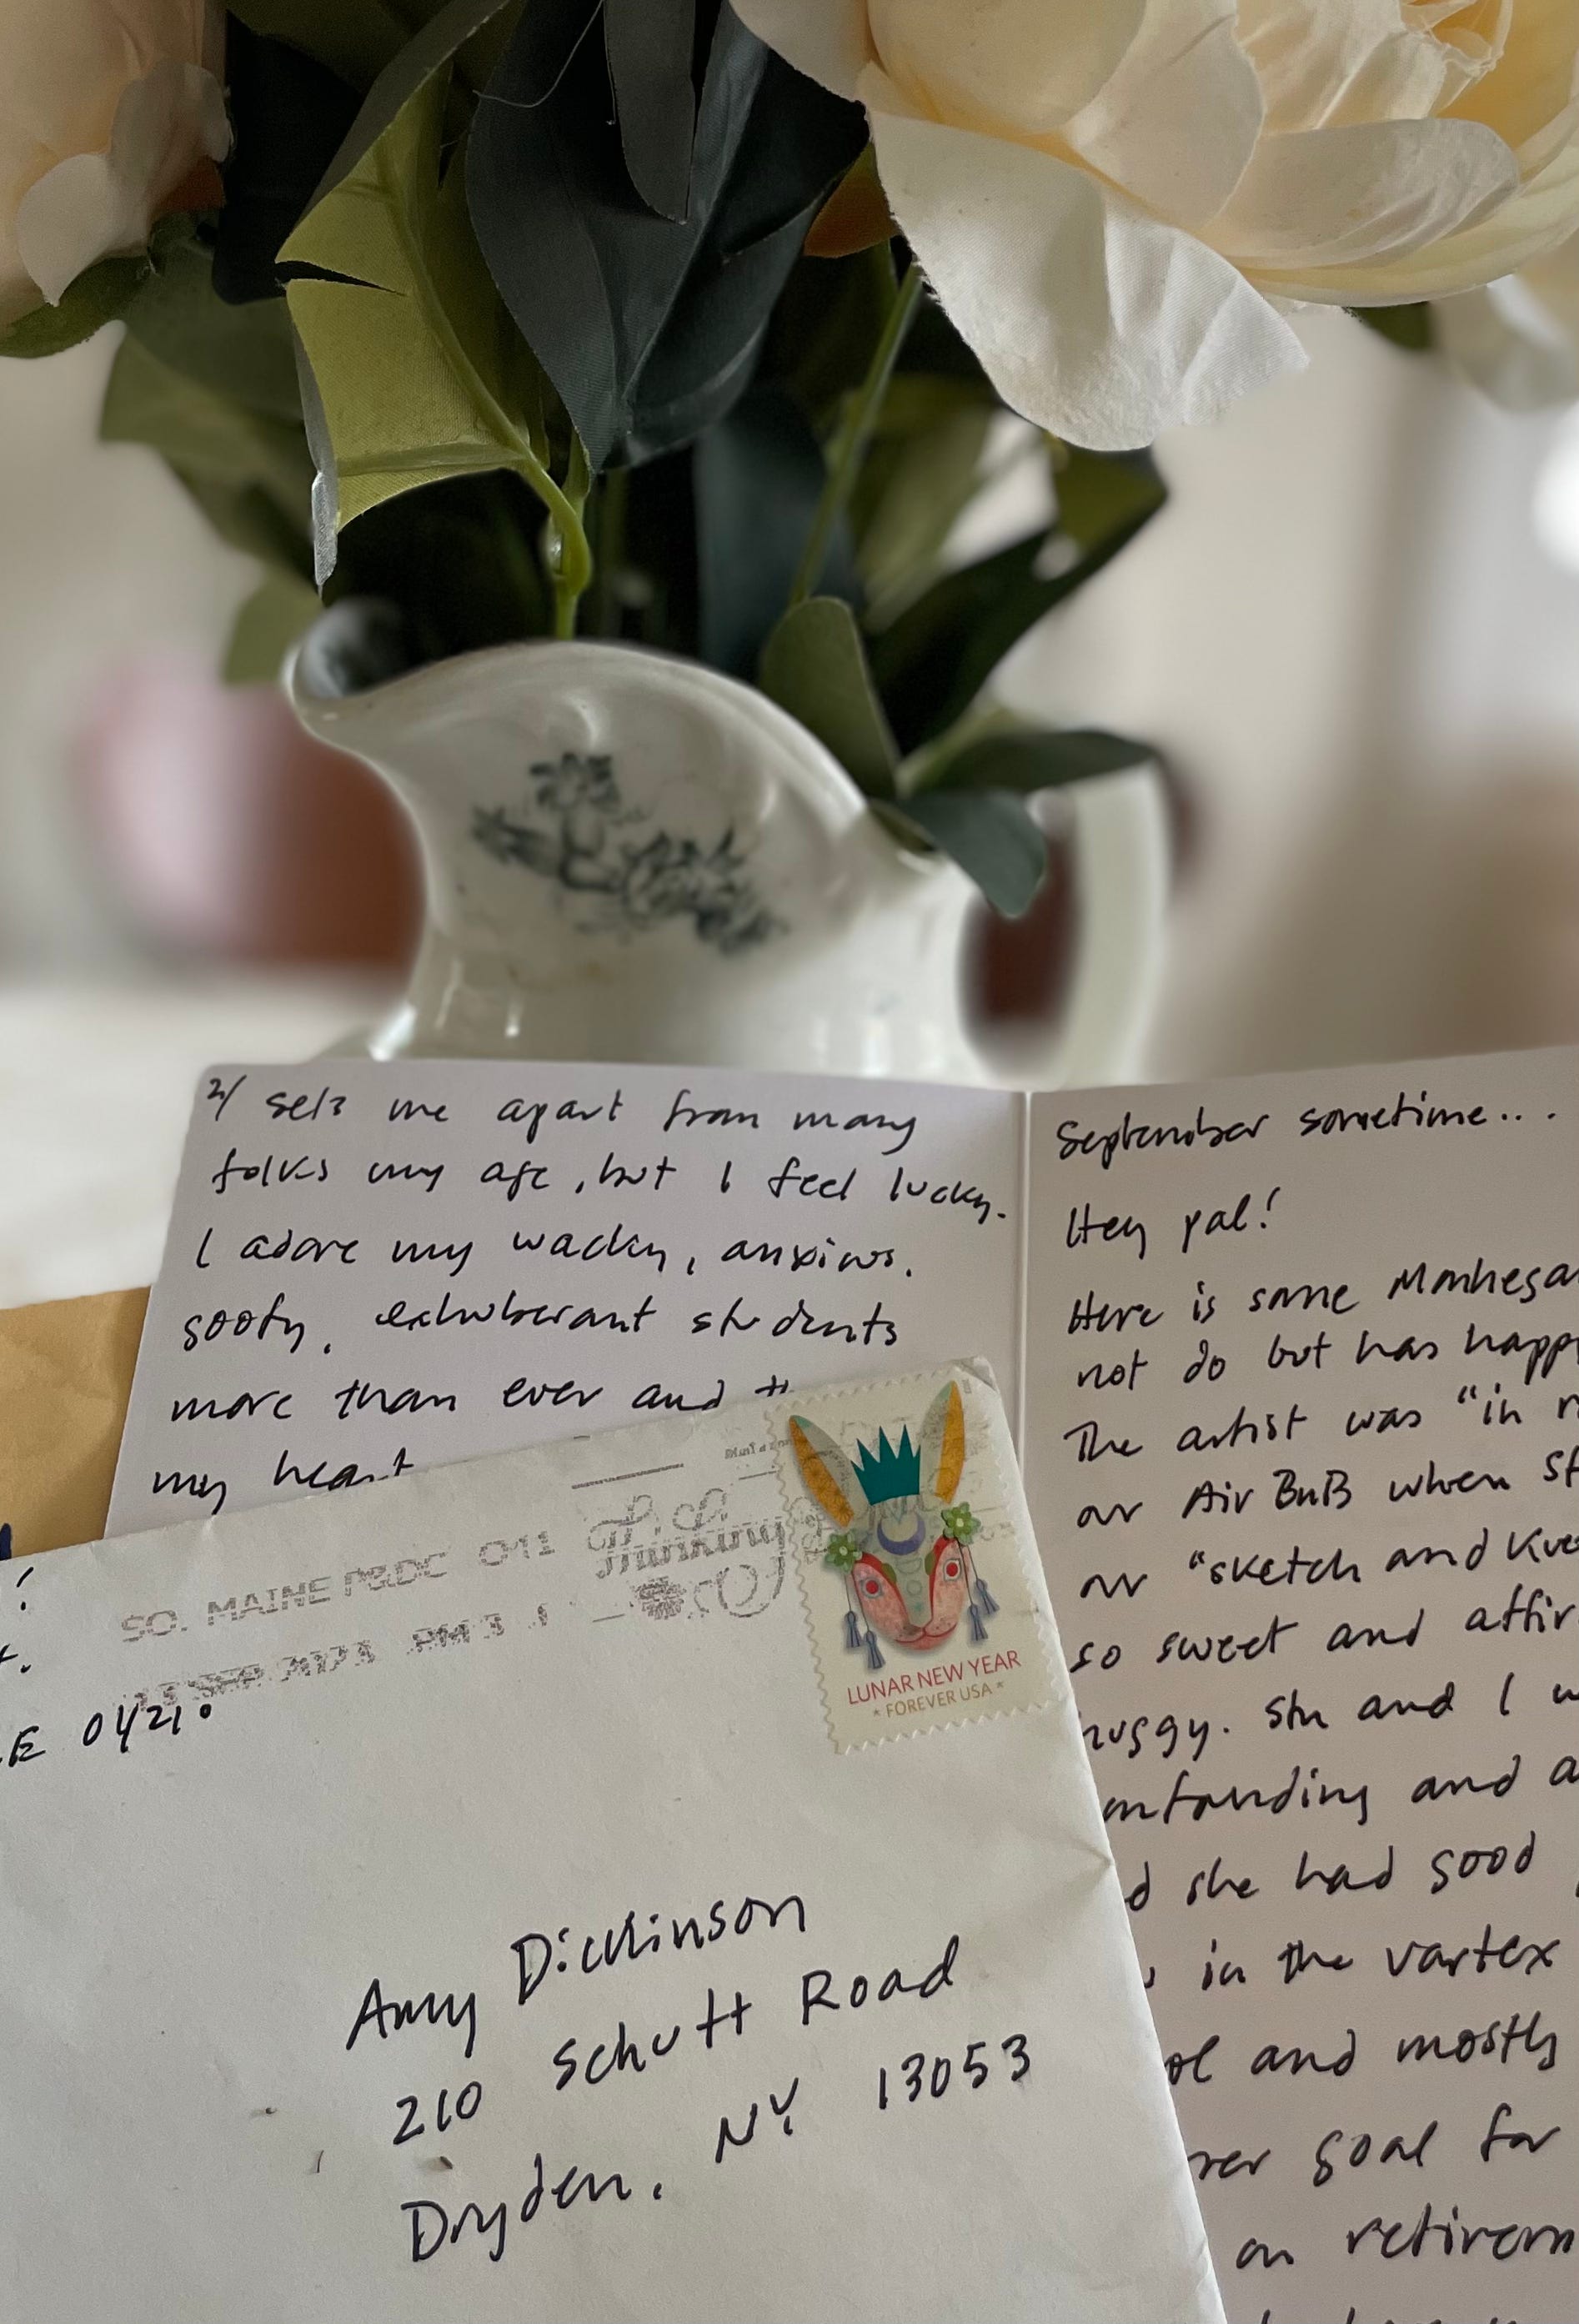 2/ sets me apart from many
folks my age, but I feel lucky.
I adore my wacky, anxious,
goofy, exhuberant students
more than ever and
my heart
September sometime...
Hey pal!
Here is some Monhegan
not do but has
The artist was "in
our Air BnB when
our "sketch and
so sweet and
huggy. Stu and I
and
she had good
in the vortex
and mostly
goal for
on
!
SO. MAINE P&DC 041
SEP 2023 PM 3
Thinking
E 0421
LUNAR NEW YEAR
* FOREVER USA *
Amy Dickinson
210 Schutt Road
Dryden, NY 13053